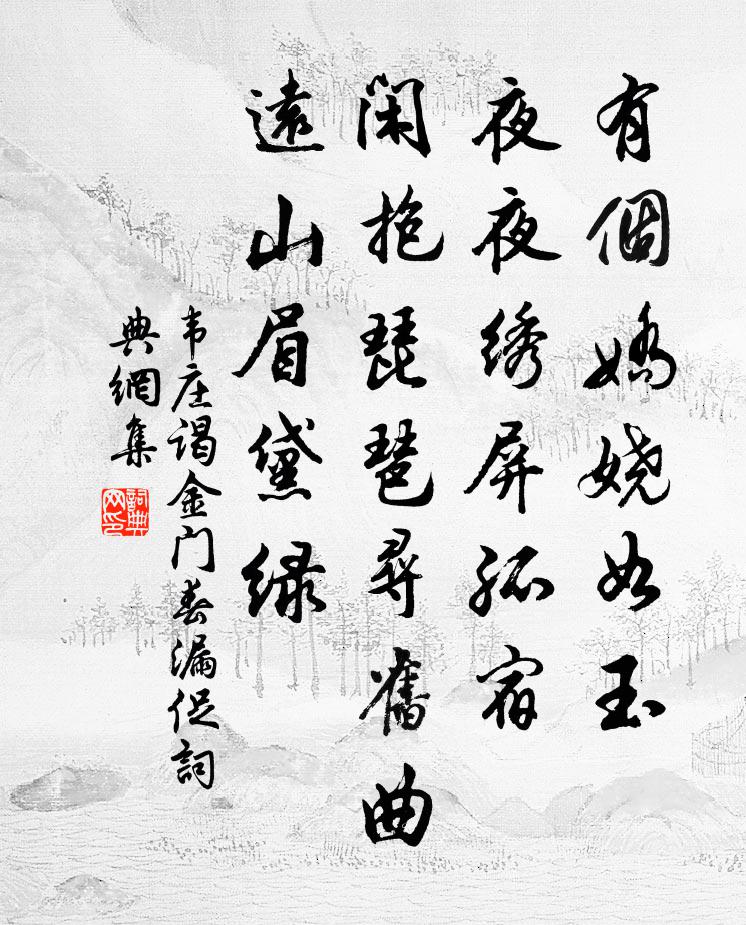 有個嬌嬈如玉
夜夜绣屏孤宿
閑抱琵琶尋舊曲
遠山眉黛绿
韦庄谒金门春漏促詞
典網集
詞典
网印